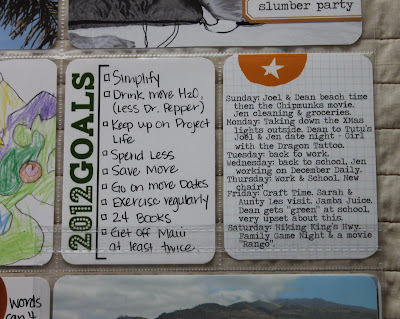 slumber party
2012 GOALS
Simplify
Drink more H2O,
(less Dr. Pepper)
Keep up on Project
Life
Spend Less
Save More
Go on more Dates
Exercise regularly
24 Books
Get off Maui
at least twice
Sunday: Joel & Dean beach time
then the Chipmunks movie.
Jen cleaning & groceries.
Monday: Taking down the XMas
lights outside. Dean to Tutu's
Joel & Jen date night - Girl
with the Dragon Tattoo.
Tuesday: back to work.
Wednesday: back to school, Jen
working on December Daily.
Thursday: Work & School. New
chair!
Friday: Craft Time. Sarah &
Aunty Les visit. Jamba Juice.
Dean gets "green" at school,
very upset about this.
Saturday: Hiking King's Hwy.
Family Game Night & a movie
"Rango".
words
can't